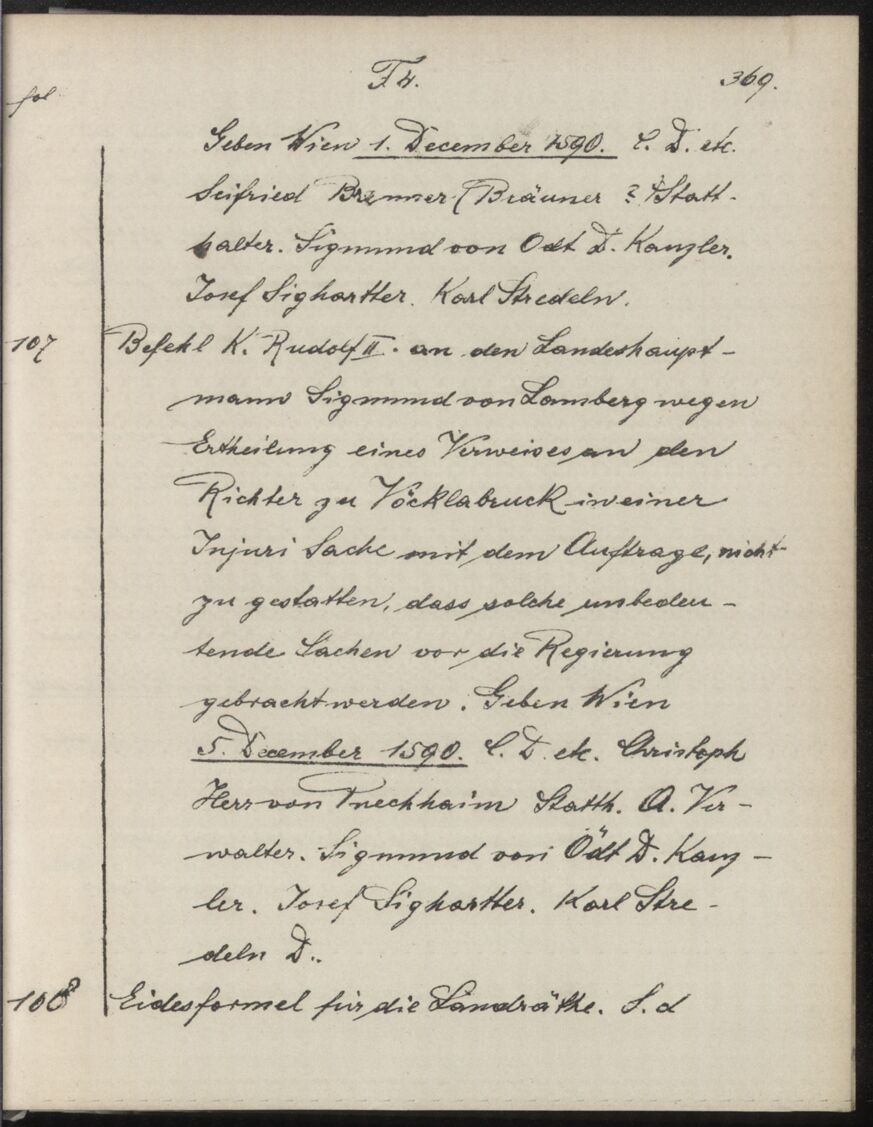 F 4. 369.
fol
Geben Wien 1. December 1590. C. D. etc.
Seifried Brenner (Bräuner ?) Statt-
halter. Sigmund von Ödt D. Kanzler.
Josef Sighartter. Karl Stredeln.
107 Befehl K. Rudolf II. an den Landeshaupt-
mann Sigmund von Lamberg wegen
Ertheilung eines Verweises an den
Richter zu Vöcklabruck in einer
Injuri Sache mit dem Auftrage, nicht
zu gestatten, dass solche unbedeu-
tende Sachen vor die Regierung
gebracht werden. Geben Wien
5. December 1590. C. D. etc. Christoph
Herr von Puechhaim Statth. A. Ver-
walter. Sigmund von Ödt D. Kanz-
ler. Josef Sighartter. Karl Stre-
deln D.
108 Eidesformel für die Landräthe. S. d